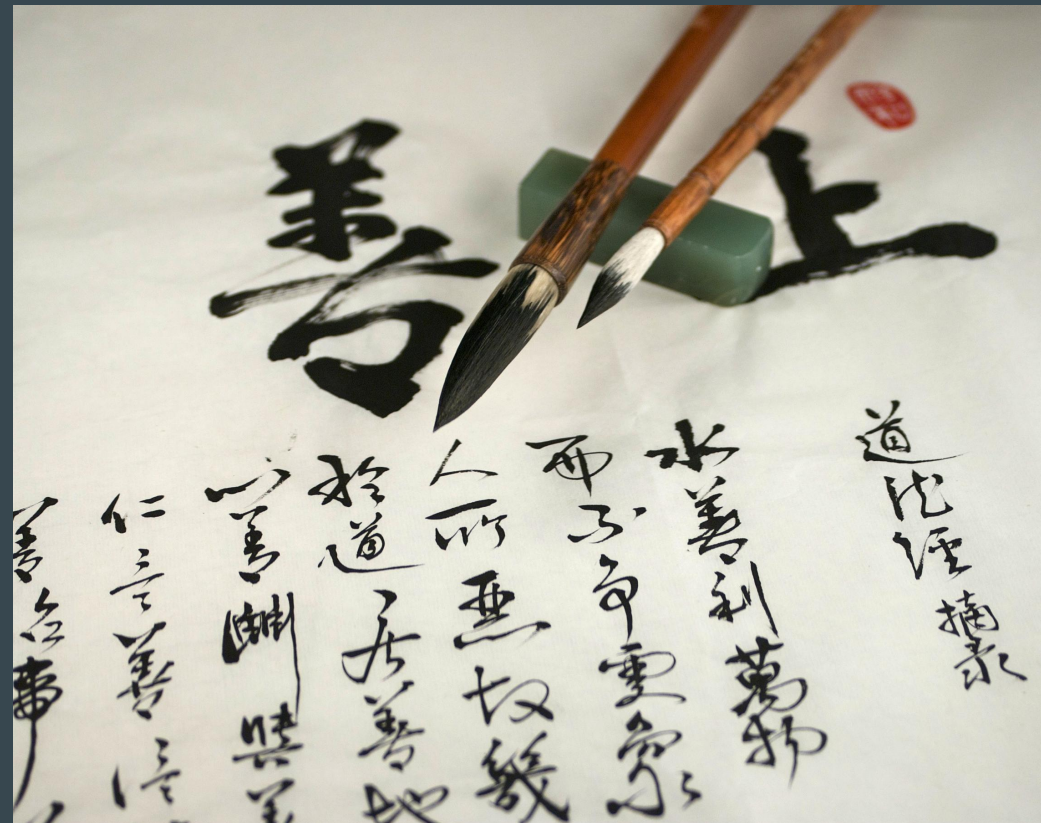 上善
道德经摘录
水善利萬物
而不争處衆
人所惡故幾
於道居善地
心善淵與善
仁言善信
善治事